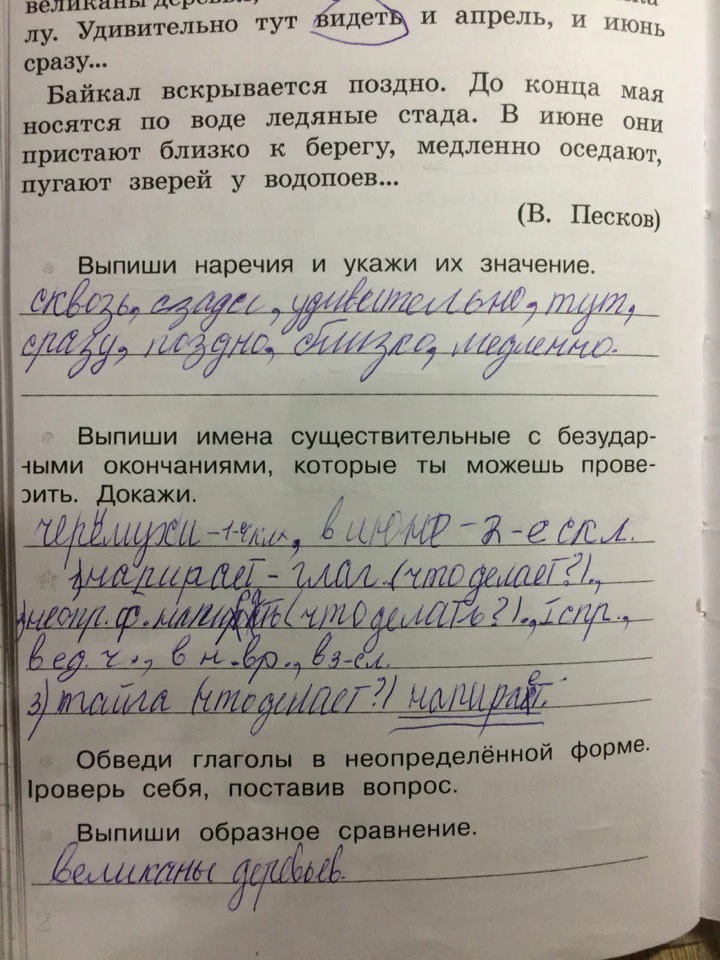 великаны деревья,
лу. Удивительно тут видеть и апрель, и июнь
сразу...
Байкал вскрывается поздно. До конца мая
носятся по воде ледяные стада. В июне они
пристают близко к берегу, медленно оседают,
пугают зверей у водопоев...
(В. Песков)
Выпиши наречия и укажи их значение.
сквозь, сзади, удивительно, тут,
сразу, поздно, близко, медленно.
Выпиши имена существительные с безудар-
ными окончаниями, которые ты можешь прове-
рить. Докажи.
черёмухи -1-е скл., в июне - 2-е скл.
1) напирает - глаг. (что делает?).,
2) неопр. ф. напирать (что делать?)., I спр.,
в ед. ч., в н. вр., в 3-ем л.
3) тайга (что делает?) напирает.
Обведи глаголы в неопределённой форме.
Проверь себя, поставив вопрос.
Выпиши образное сравнение.
великаны деревьев.
2